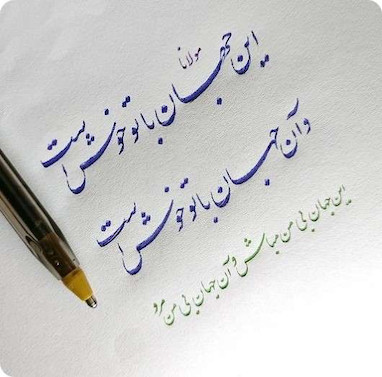 مولانا
این جهان با تو خوش است
وآن جهان با تو خوش است
این جهان بی من مباش و آن جهان بی من مرو